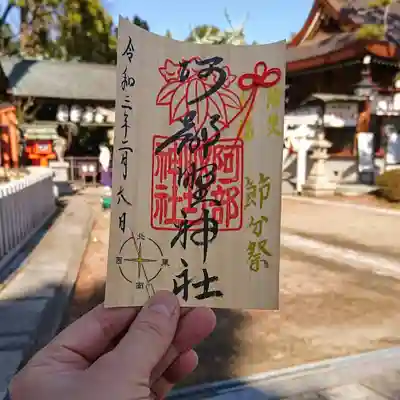 節分祭
阿部野神社
阿部
神社
令和三年二月六日
北
西 東
南